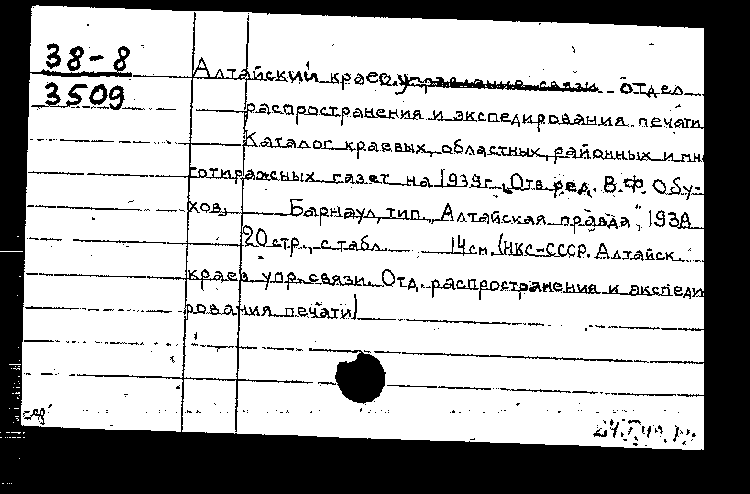 38-8
3509
Алтайский краев. управление связи отдел
распространения и экспедирования печати
Каталог краевых, областных, районных и мно
готиражных газет на 1939г. Отв. ред. В.Ф. Обу-
хов.
Барнаул, тип. „Алтайская правда", 1938
20 стр., с табл. 14 см. (НКС-СССР. Алтайск
краев упр. связи. Отд. распространения и экспеди
рования печати)